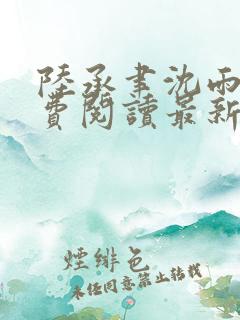 陸承聿沈雨
費閱讀最新
煙緋色
未經同意禁止轉載